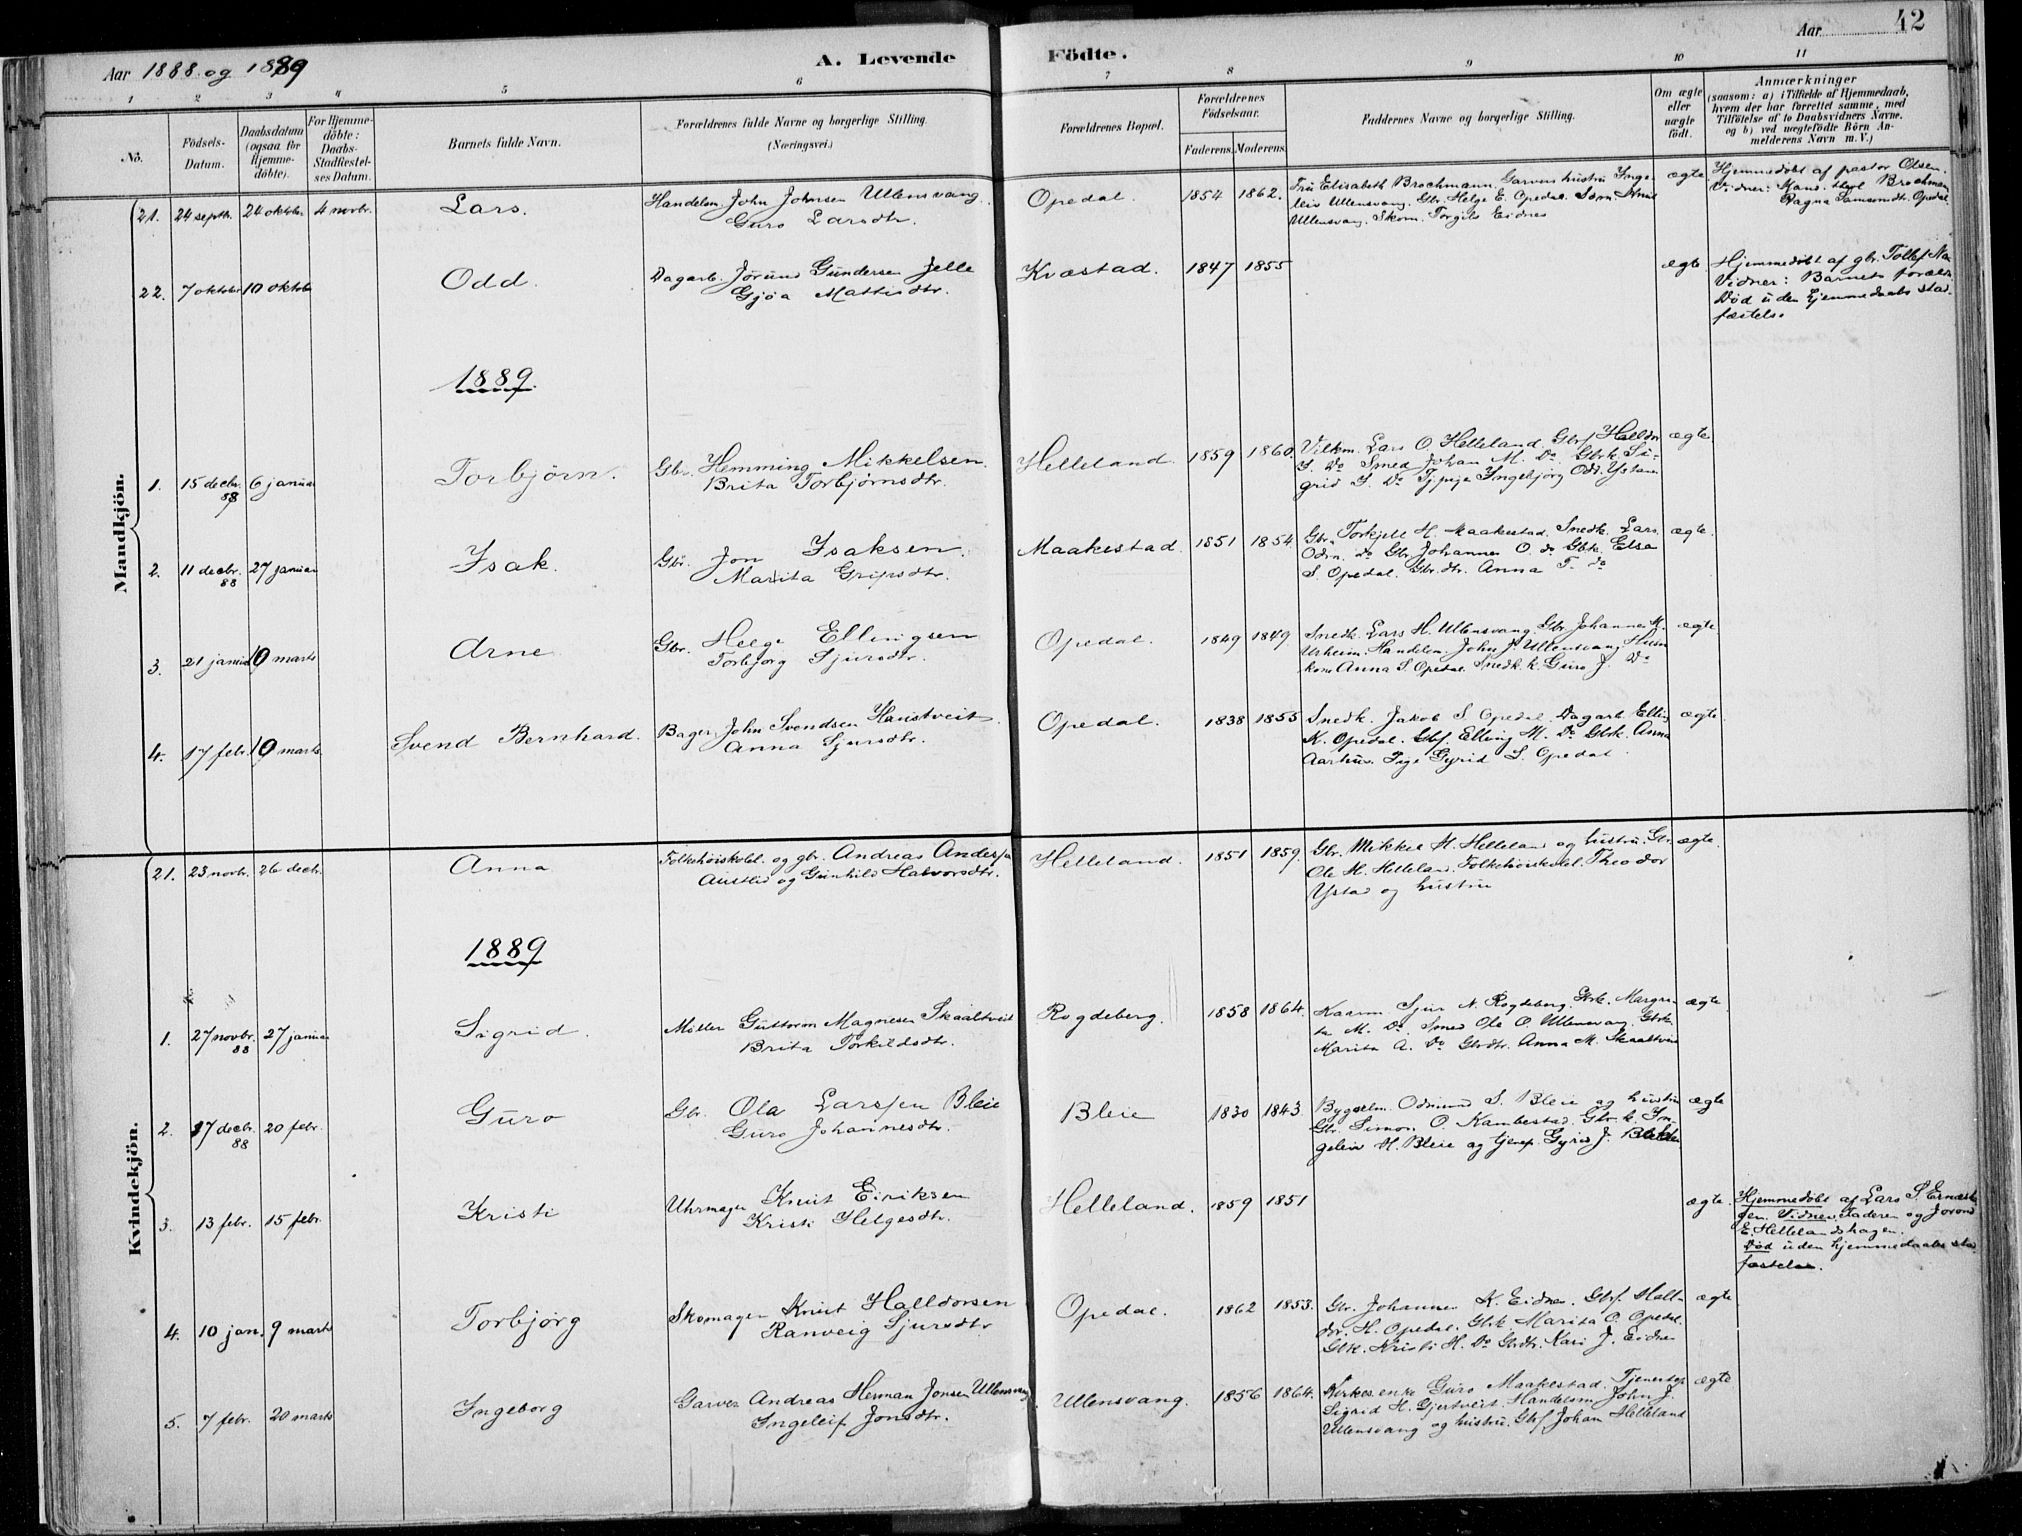 Aar 1888 og 1889
A. Levende
Födte.
Aar
42
1 2 3 4 5 6 7 8 9 10 11
No.
Födsels-Datum.
Daabsdatum (ogsaa for Hjemme-döbte).
For Hjemme-döbte: Daabs-Stadfæstelses Datum.
Barnets fulde Navn.
Forældrenes fulde Navne og borgerlige Stilling. (Næringsvei.)
Forældrenes Bopæl.
Forældrenes Födselsaar.
Faderens. Moderens.
Faddernes Navne og borgerlige Stilling.
Om ægte eller uægte födt.
Anmærkninger
(saasom: a) i Tilfælde af Hjemmedaab, hvem der har forrettet samme, med Tilföielse af to Daabsvidners Navne, og b) ved uægtefödte Börn Anmelderens Navn m. V.)
Mandkjön.
21. 24 septbr. 24 oktobr. 4 novbr. Lars. Handelsm. John Johnsen Ullensvang. Opedal. 1854 1862. Fru Elisabeth Brochmann. Garvers hustru Inge- ægte Hjemmedöbt af pastor Olsen.
Guro Larsdtr. leiv Ullensvang. Gbr. Helge E. Opedal. Vidner: Brochman
Ullensvang. Skom. Torgils Eidnes Ragna Samsondtr. Opedal
22. 7 oktobr 10 oktobr Odd. Dagarb. Jørund Gundersen Jelle Kvæstad. 1847 1855 ægte Hjemmedöbt af gbr. Tollef
Gjøa Mattisdtr. Vidner: Barnets foræld
Död uden hjemmedaabs stad-
fæstelse
1889.
1. 15 decbr. 88 6 januar Torbjörn. Gbr. Hemming Mikkelsen. Helleland. 1859 1860. Vilkm. Lars O Helleland. Gbrf Halldor ægte
Brita Torbjörnsdtr. S. Do Smed Johan M. Do. Gbrk. Si-
grid S. Do Ingebjörg Odd. Ystanes
2. 11 decbr. 88 27 januar Isak. Gbr. Jon Isaksen. Maakestad. 1851 1854. Gbr. Torkjell H. Maakestad. Snedk. Lars ægte.
Marita Gripsdtr. Odm. do Gbr Johannes O. do Gbrk. Elsa
S. Opedal. Gbr.dtr. Anna T. do
3. 21 januar 10 marts Arne Gbr. Helge Ellingsen Opedal. 1849 1849. Snedk. Lars H. Ullensvang. Gbr. Johannes M. ægte
Torbjörg Sjursdtr. Urheim. Handelsm. John J. Ullensvang.
kone Anna S. Opedal. Snedk. k. Guro J. Do
4. 17 febr. 10 marts Svend Bernhard. Bager John Svendsen Haustveit. Opedal. 1838 1855 Snedk. Jakob S. Opedal. Dagarb. Elling ægte.
Anna Sjursdtr. K. Opedal. Gbrf. Elling M. Do Gbrk. Anna
Aarhus. Pige Gyrid S. Opedal
Kvindekjön.
21. 23 novbr. 26 decbr. Anna Folkehöiskolel. og gbr. Andreas Anders Helleland. 1851 1859. Gbr. Mikkel H. Helleland og hustru. Gbr. ægte.
Austlid og Gunhild Halvorsdtr. Ole H. Helleland. Folkehöiskolel. Theodor
Ystad og hustru
1889
1. 27 novbr. 88 27 januar Sigrid. Möller Guttorm Magnesen Skaaltveit Rogdeberg. 1858 1864. Kaarm. Sjur N. Rogdeberg. Gbrk. Margre- ægte
Brita Torkildsdtr. ta M. Do. Smed Ole O. Ullensvang. Gbrk.
Marita A. Do Gbrdtr. Anna M. Skaaltveit
2. 17 decbr. 88 20 febr. Guro Gbr. Ola Larssen Bleie Bleie 1830 1843. Bygselm. Odmund S. Bleie og hustru ægte
Guro Johannesdtr. Gbr. Simon O. Kambestad. Gbr.k. In-
geleiv H. Bleie og tjenep. Gyrid J.
3. 13 febr. 15 febr. Kristi Uhrmager Knut Eiriksen Helleland. 1859 1851 ægte. Hjemmedöbt af Lars S. Ernæste
Kristi Helgesdtr. gen. Vidner Faderen og Jorond
E. Hellelandshagen.
Död uden hjemmedaabs stad-
fæstelse.
4. 10 jan. 9 marts Torbjörg Skomager Knut Halldorsen Opedal. 1862 1853. Gbr. Johannes K. Eidnes. Gbrf Hall- ægte
Ranveig Sjursdtr dor. H. Opedal. Gbrk. Marita O. Opedal.
Gbk. Kristi H. Do Gbrdtr. Kari J. Eidnes
5. 7 febr. 20 marts Ingeborg Garver Andreas Herman Jonsen Ullensvang Ullensvang. 1856 1864. Kirkes. enke Guro Maakestad. Tjenestep ægte
Ingeleif Jonsdtr. Sigrid H. Gjertveit. Handelsm John J.
Ullensvang og hustru. Gbrf Johan Helleland